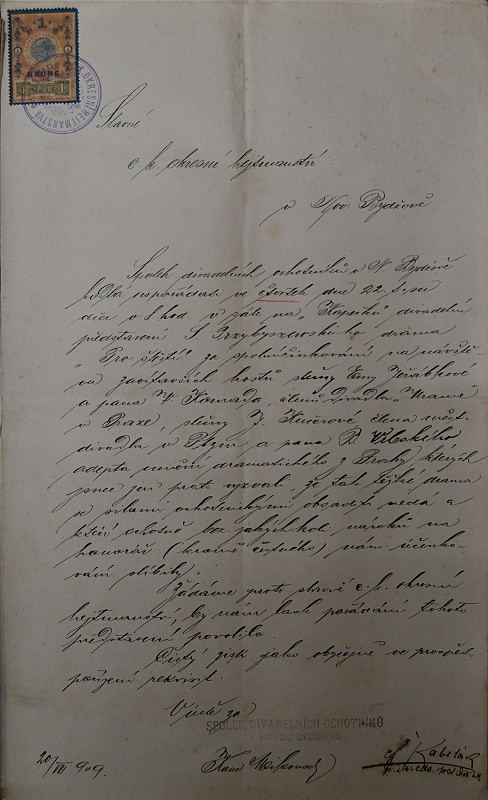 1
KRONE
OKRESNÍ HEJTMANSTVÍ
Slavné
c. k. okresní hejtmanství
v Nov. Bydžově
Spolek divadelních ochotníků v N. Bydžově
hodlá uspořádati ve čtvrtek dne 22. t. m.
o 8 hod v sále na „Kopečku" divadelní
představení S. Przybyszewského drama
„Pro štěstí" za spoluúčinkování na návště-
vu zavítavších hostů slečny Emy Jeřábkové
a pana V. Konráda, členů Divadla „Urania"
v Praze, slečny J. Kučerové člena měst.
divadla v Plzni a pana R.
adepta umění dramatického z Prahy, kterých
jsme jen proto vyzvali, že tato těžká drama
se silami ochotnickými obsaditi nedá a
kteří ochotně bez jakýchkoli nároků na
honorář (kromě čestného) nám účinko-
vání slíbily.
Žádáme proto slavné c. k. okresní
hejtmanství, by nám laskavě pořádání tohoto
představení povolilo.
Čistý zisk jako obyčejně ve prospěch
pořízení rekvisit.
V úctě za
SPOLEK DIVADELNÍCH OCHOTNÍKŮ
20/VII 909.
Kabeláč